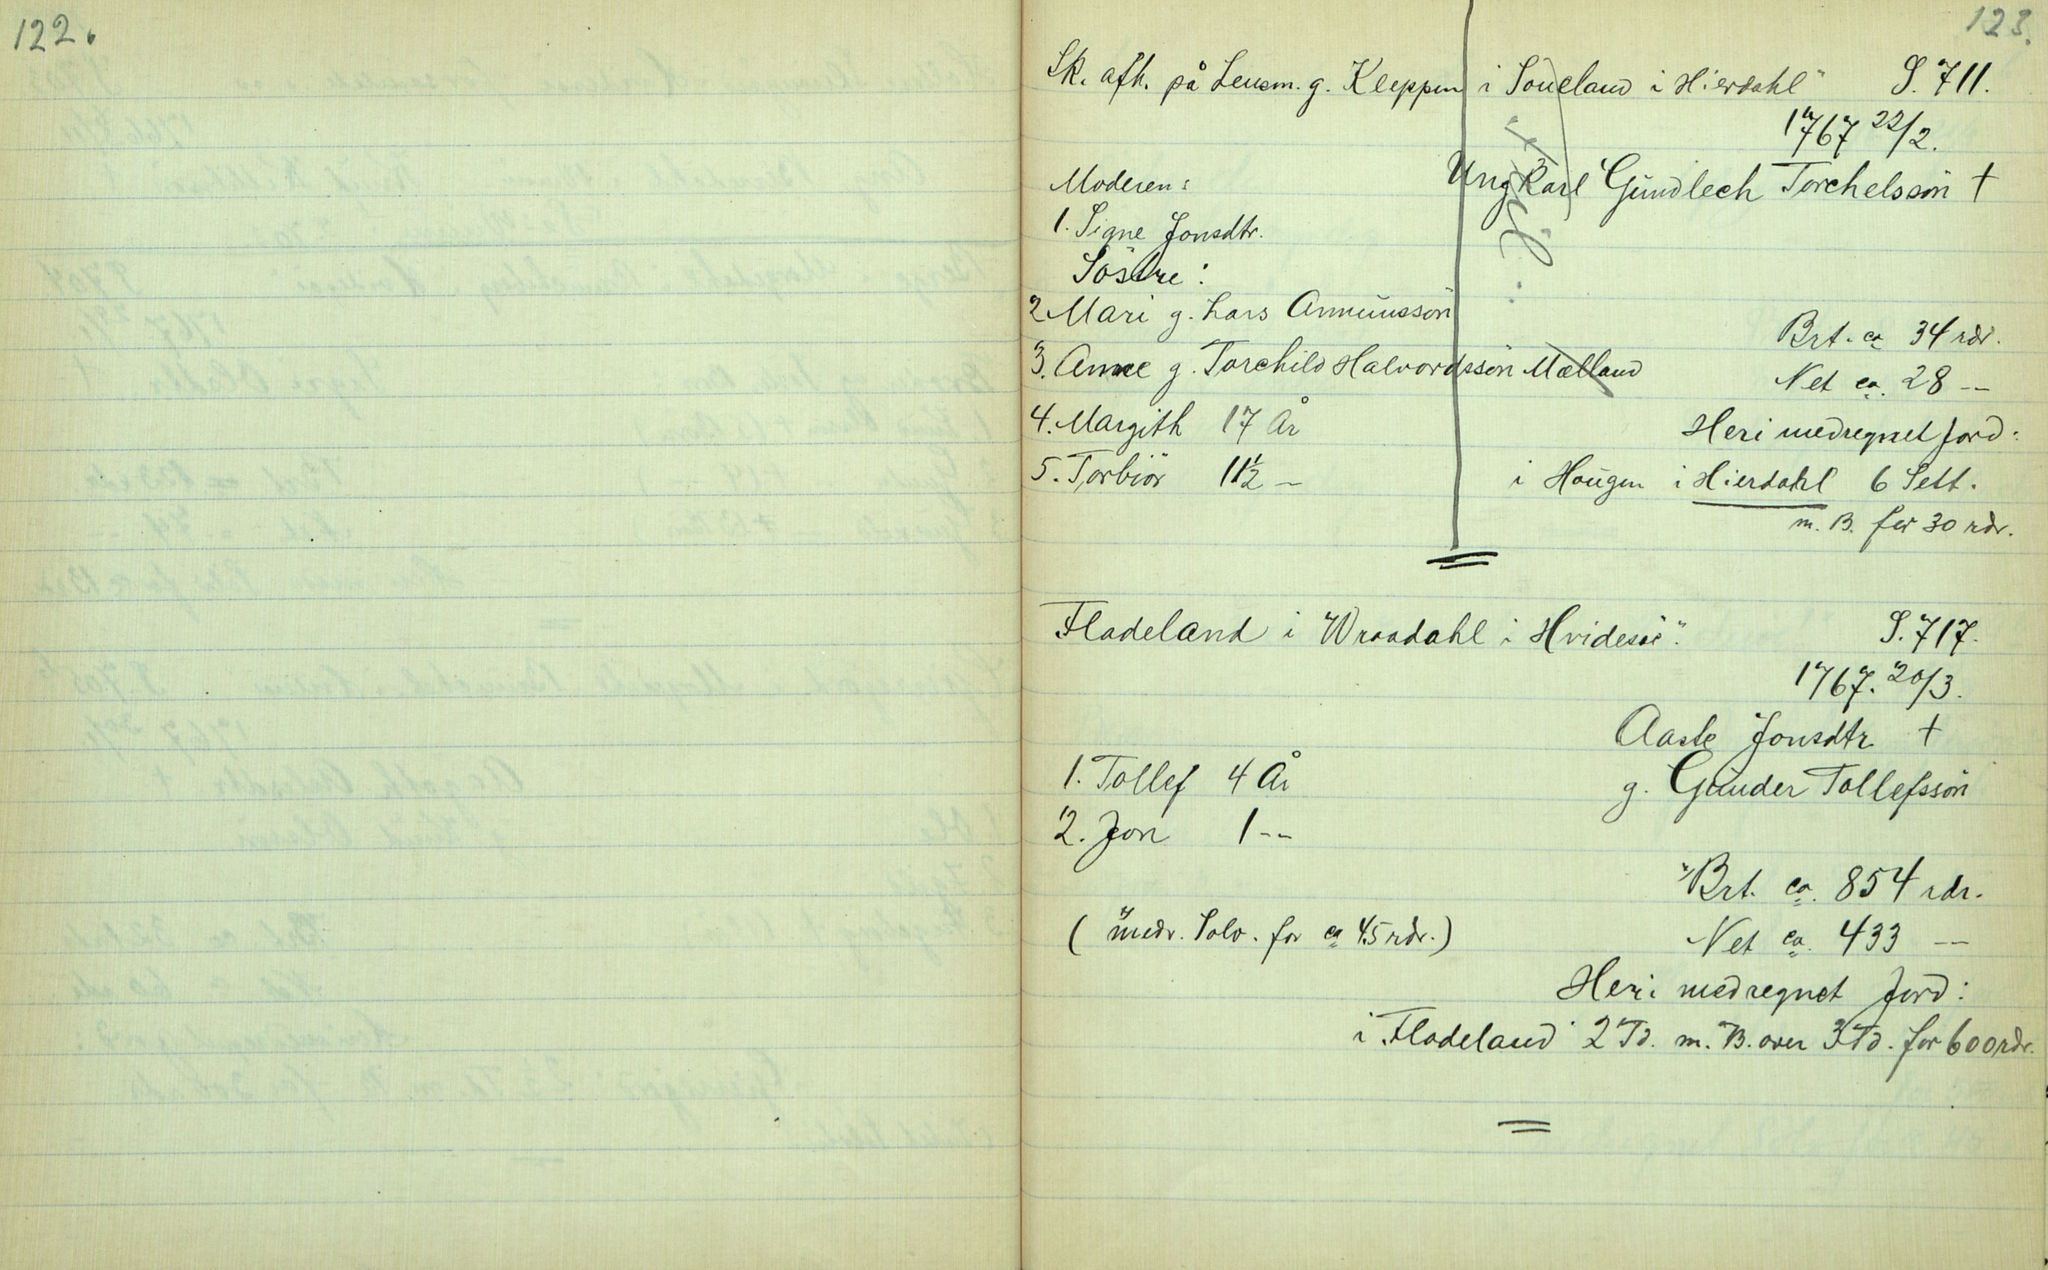 122.
123.
Sk. afh. på Lensm. g. Kleppen i Soueland i Hierdahl" S. 711.
1767 22/2.
Moderen: Ungkarl Gündlech Torchelssön †
1. Signe Jonsdtr.
Söstre:
2 Mari g. Lars Anmünssön Brt. ca 34 rdr.
3. Anne g. Torchild Halvordssön Mælland Net ca. 28 --
4. Margith 17 År Heri medregnet Jord:
5. Torbiör 11½ - i Hougen i Hierdahl 6 Sett.
m. B. for 30 rdr.
Fladeland i Wraadahl i Hvidesöe". S. 717.
1767. 20/3.
Aaste Jonsdtr †
1. Tollef 4 År g. Gunder Tollefssön
2. Jon 1 --
Brt. ca. 854 rdr.
( medr. Solv. for ca 45 rdr.) Net ca. 433 --
Heri medregnet Jord:
i Fladeland 2 Td. m. B. over 3 Td. for 600 rdr.